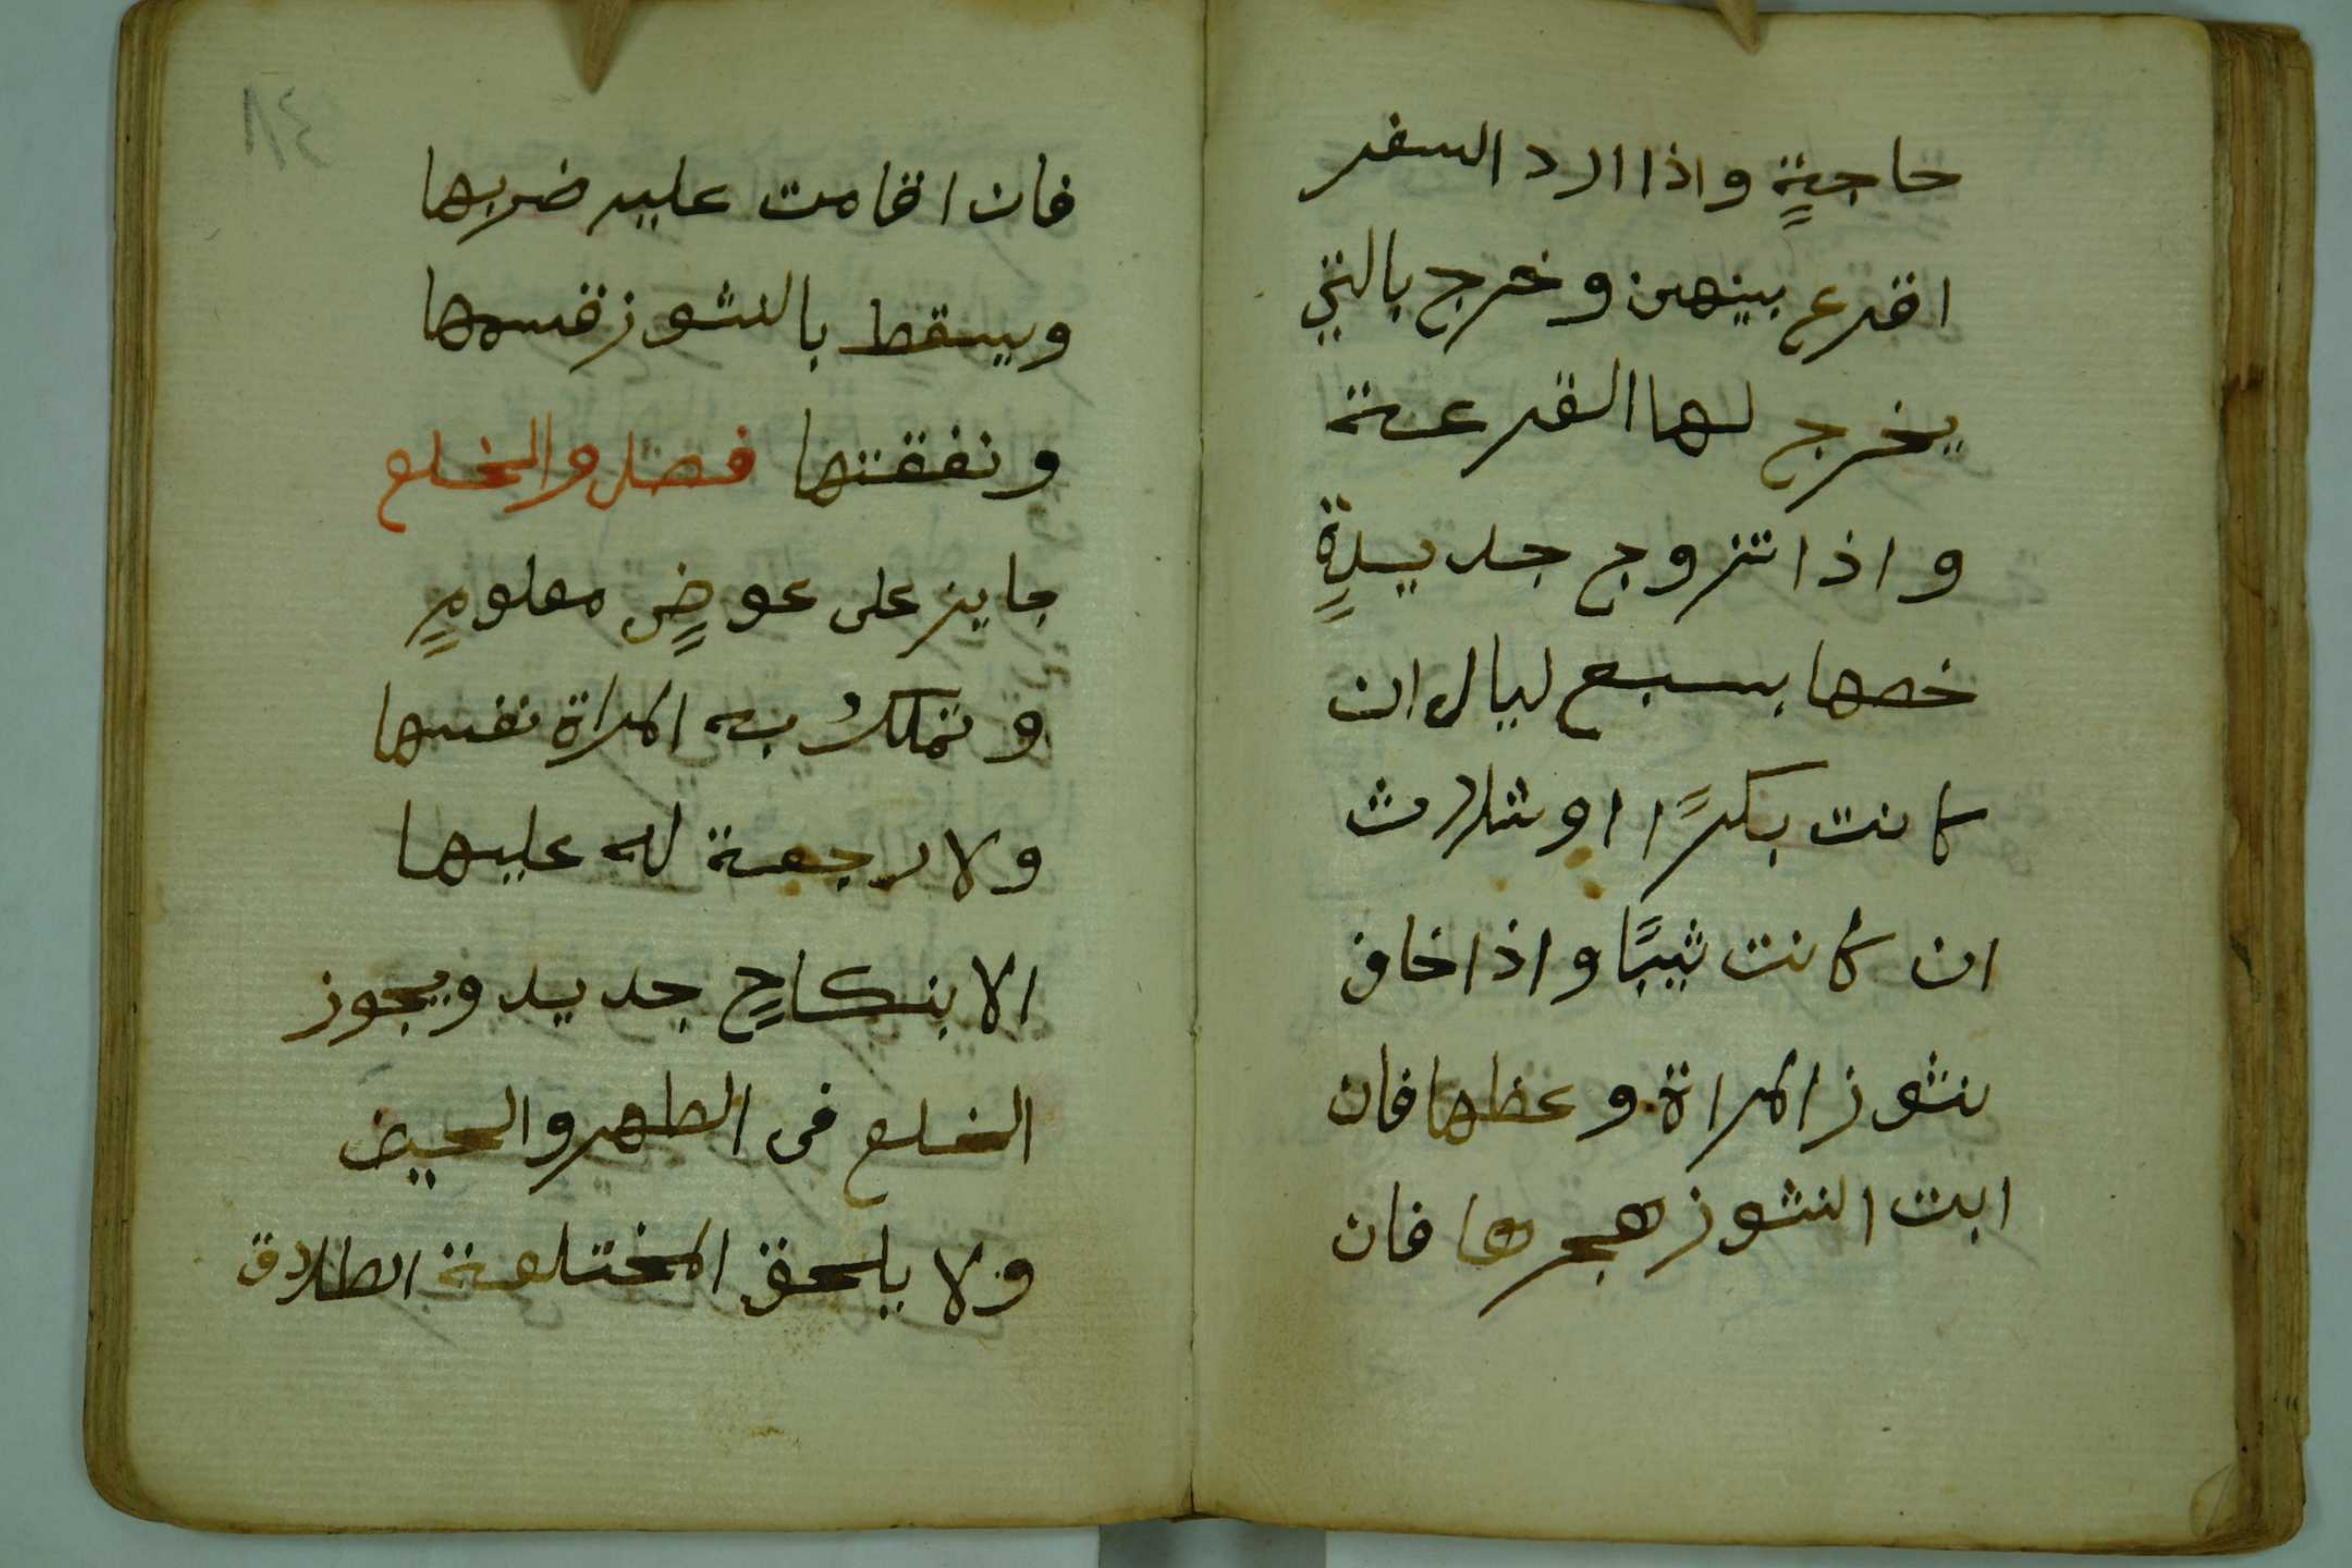 حاجةٍ واذا ارد السفر
اقرع بينهن وخرج بالتي
يخرج لها القرعة
واذا تزوج جديدةٍ
خصها بسبع ليال ان
كانت بكرًا او ثلاث
ان كانت ثيبًا واذا خاف
نشوز المراة وعظها فان
ابت النشوز هجرها فان
فان اقامت عليه ضربها
ويسقط بالنشوز قسمها
ونفقتها فصل والخلع
جايز على عوضٍ معلومٍ
وتملك به المراة نفسها
ولا رجعة له عليها
الا بنكاحٍ جديد ويجوز
الخلع فى الطهر والحيض
ولا يلحق المختلعة الطلاق